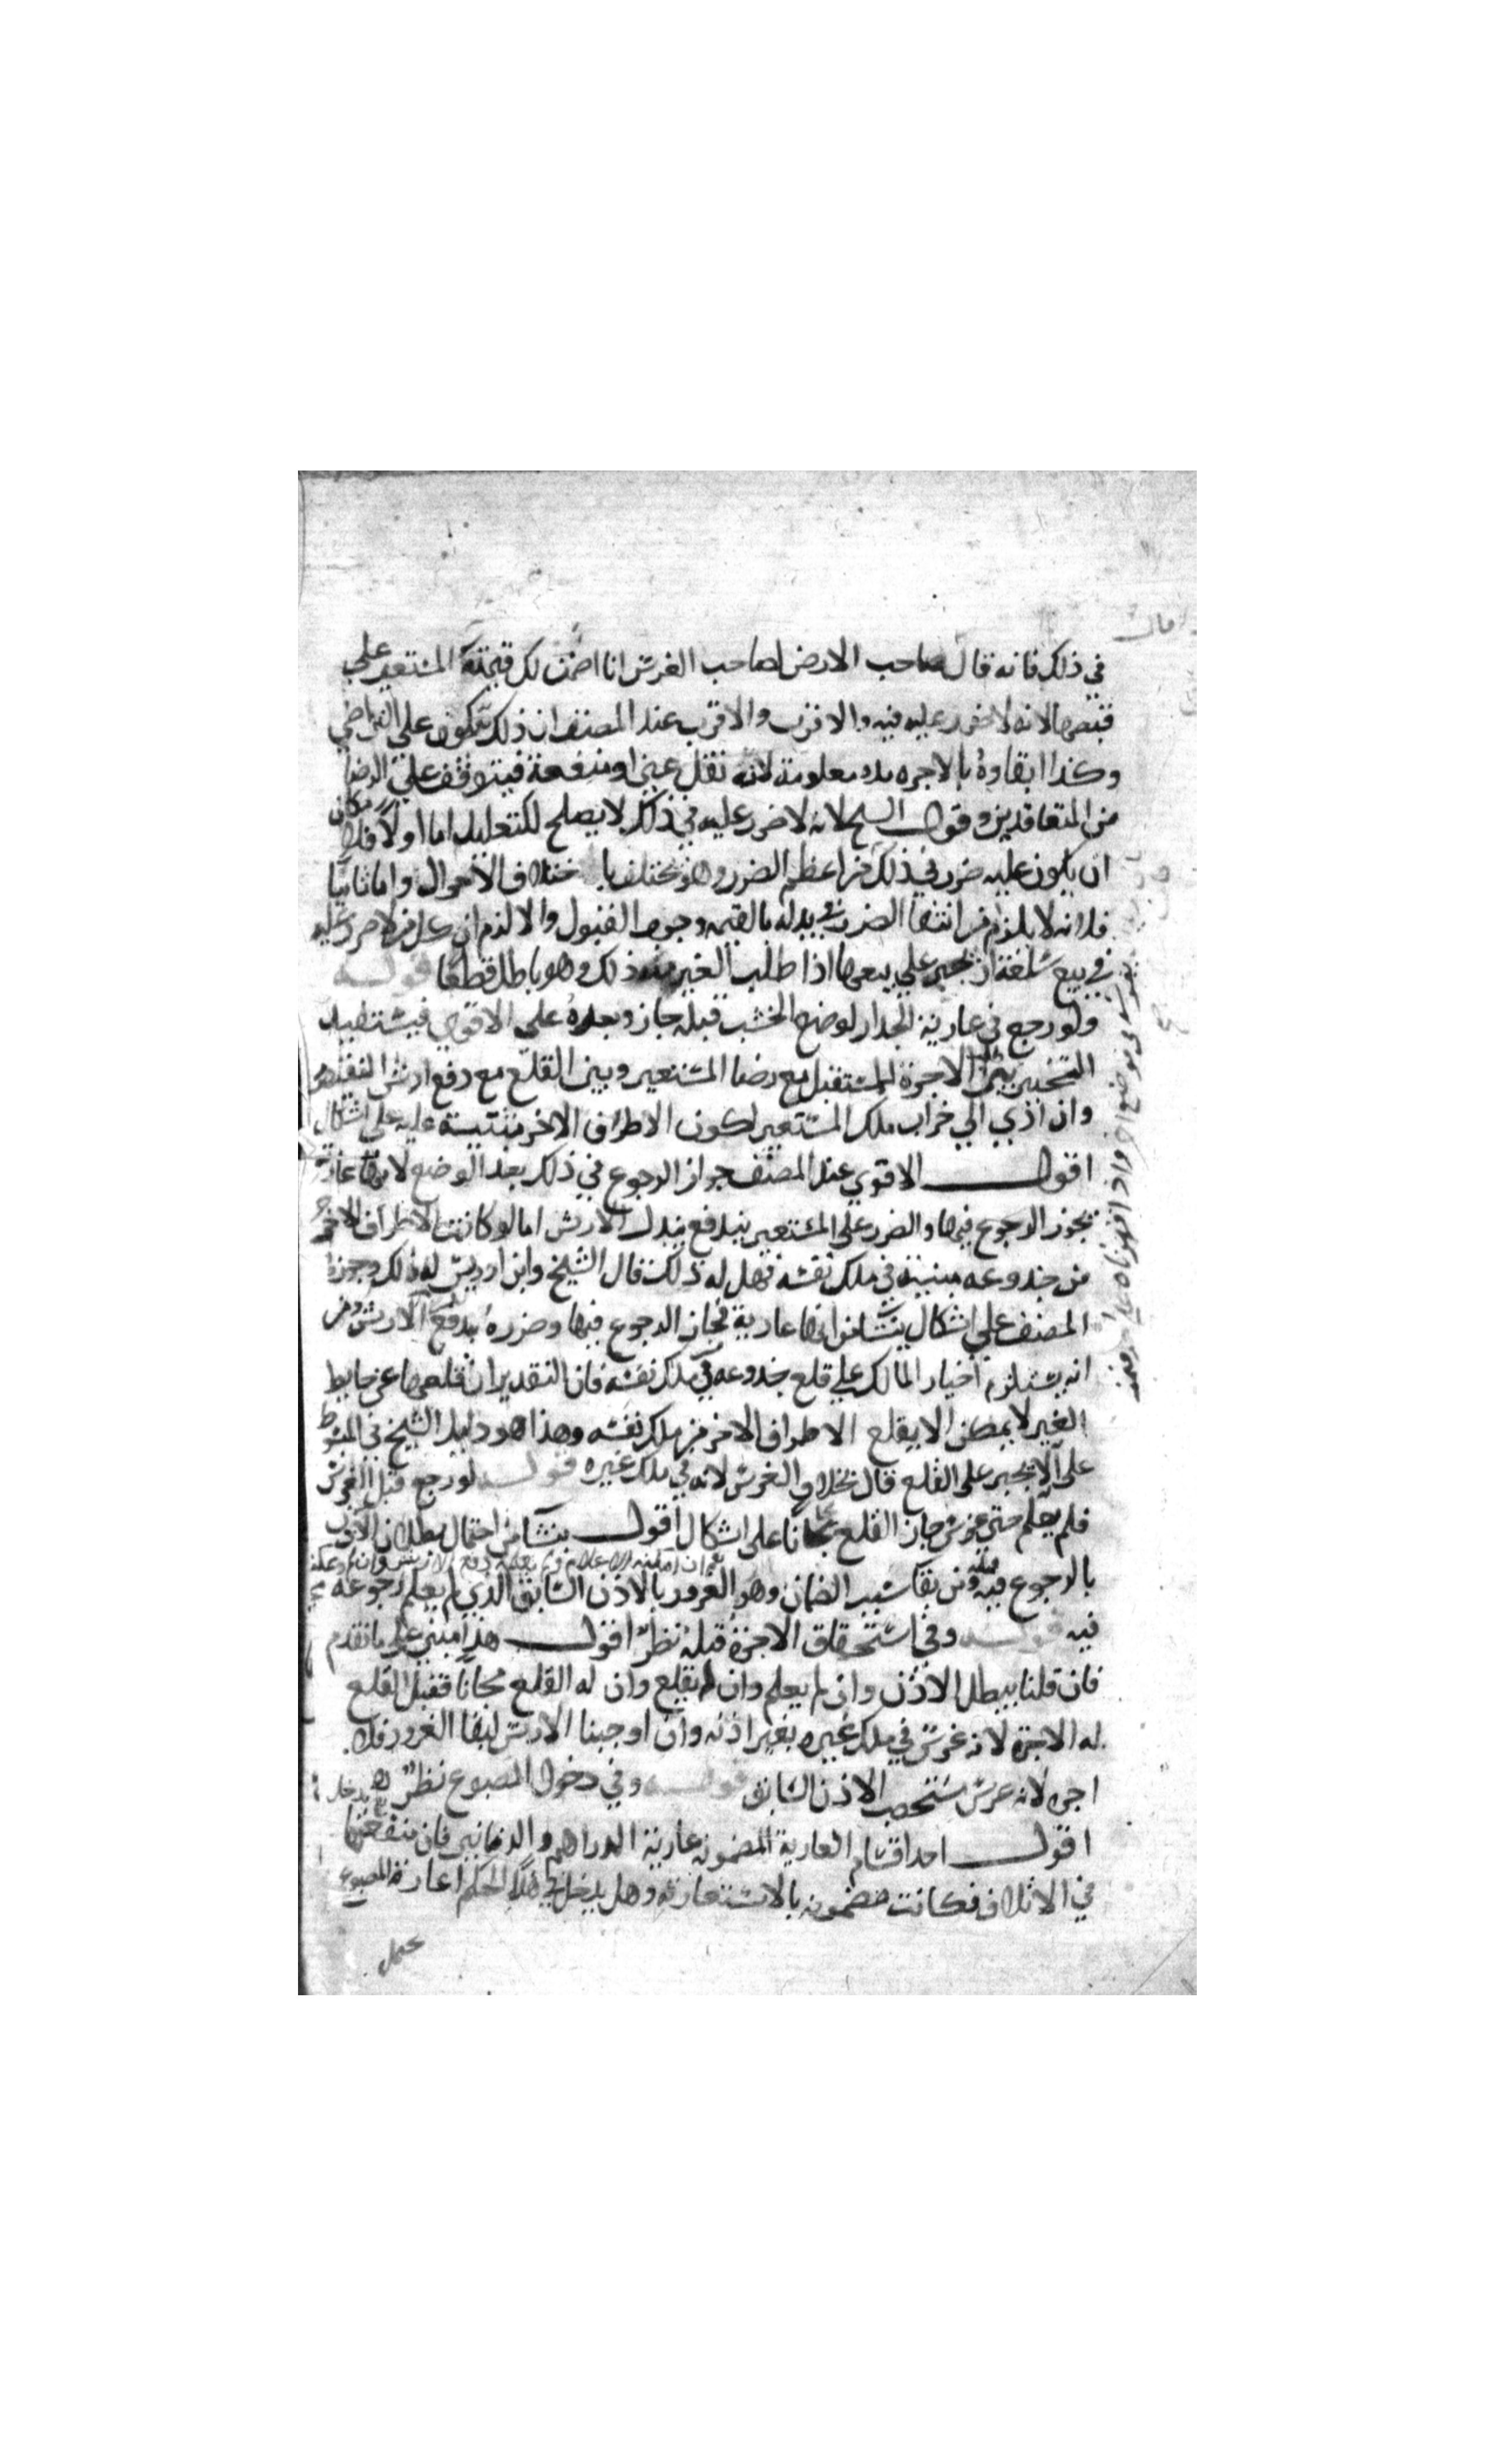 في ذلك فانه قال صاحب الارض لصاحب الغرس انا اضمن لك قيمته المستعير على
قبضها لانه لا ضرر عليه فيه والاقرب والاقرب عند المصنف ان ذلك يكون على التراضي
وكذا ابقاوه بالاجره مده معلومة لانه نقل عين او منفعة فيتوقف على الرضا
من المتعاقدين وقول الشيخ لانه لا ضرر عليه في ذلك لا يصلح للتعليل اما اولا فلا مكان
ان يكون عليه ضرر في ذلك من اعظم الضرر وهو يختلف با ختلاف الاحوال واما ثانيا
فلانه لا يلزم من انتفا الضرر في بدله بالقيمه وجوب القبول والا لزم ان كل من لا ضرر عليه
في بيع سلعة ان يجبر على بيعها اذا طلب الغير منه ذلك وهو باطل قطعا قوله
ولو رجع في عارية الجدار لوضع الخشب قبله جاز وبعده على الاقوى فيستفيد
التخيير بين الاجرة للمستقبل مع رضا المستعير وبين القلع مع دفع ارش النقض
وان ادي الى خراب ملك المستعير لكون الاطراف الاخر مثبتة عليه على اشكال
اقول الاقوي عند المصنف جواز الرجوع في ذلك بعد الوضع لانها عارية
يجوز الرجوع فيها والضرر على المستعير يندفع ببذل الارش اما لو كانت الاطراف الاخر
من جذوعه مبنية في ملك نفسه فهل له ذلك قال الشيخ وابن ادريس له ذلك وجوزه
المصنف على اشكال ينشا من انها عارية فجاز الرجوع فيها وضرره يدفع الارش ومن
انه يستلزم اخبار المالك على قلع جذوعه في ملك نفسه فان التقدير ان قلعها عن حايط
الغير لا يمكن الا بقلع الاطراف الاخر من ملك نفسه وهذا هو دليل الشيخ في المبسوط
على الا يجبر على القلع قال بخلاف الغرس لانه في ملك غيره قوله لو رجع قبل الغرس
فلم يعلم حتى غرس جاز القلع مجانا على اشكال اقول ينشا من احتمال بطلان الاذن
بالرجوع فيه ومن بقا سبب الضمان وهو الغرور بالاذن السابق الذي لم يعلم رجوعه
فيه قوله وفي استحقاق الاجرة قبله نظر اقول هذا مبني على ما تقدم
فان قلنا ببطل الاذن وان لم يعلم وان له القلع مجانا فقبل القلع
له الاجرة لانه غرس في ملك غيره بغير اذنه وان اوجبنا الارش لبقا الغرور فلا
اجره لانه غرس الاذن السابق قوله وفي دخول المصبوغ نظر
اقول احد اقسام العارية المضمونه عارية الدراهم والدنانير فان منفعتها
في الاتلاف فكانت مضمونه بالاستعارة وهل يدخل في هذا الحكم اعارة المصبوغ